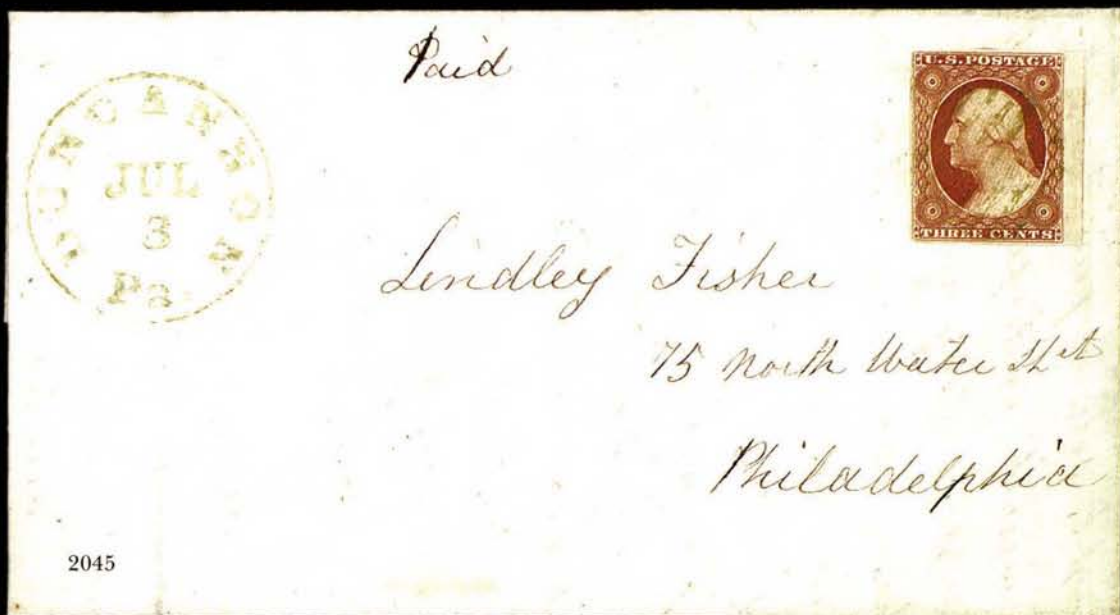 Paid
U.S. POSTAGE
THREE CENTS
DUNCANNON
JUL
3
Pa.
Lindley Fisher
75 North Water St
Philadelphia
2045